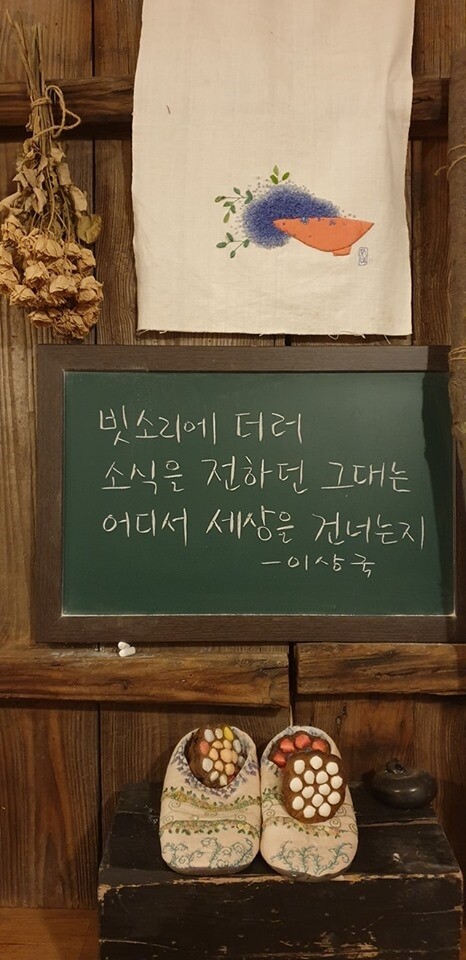 빗소리에 더러
소식을 전하던 그대는
어디서 세상을 건너는지
- 이상국